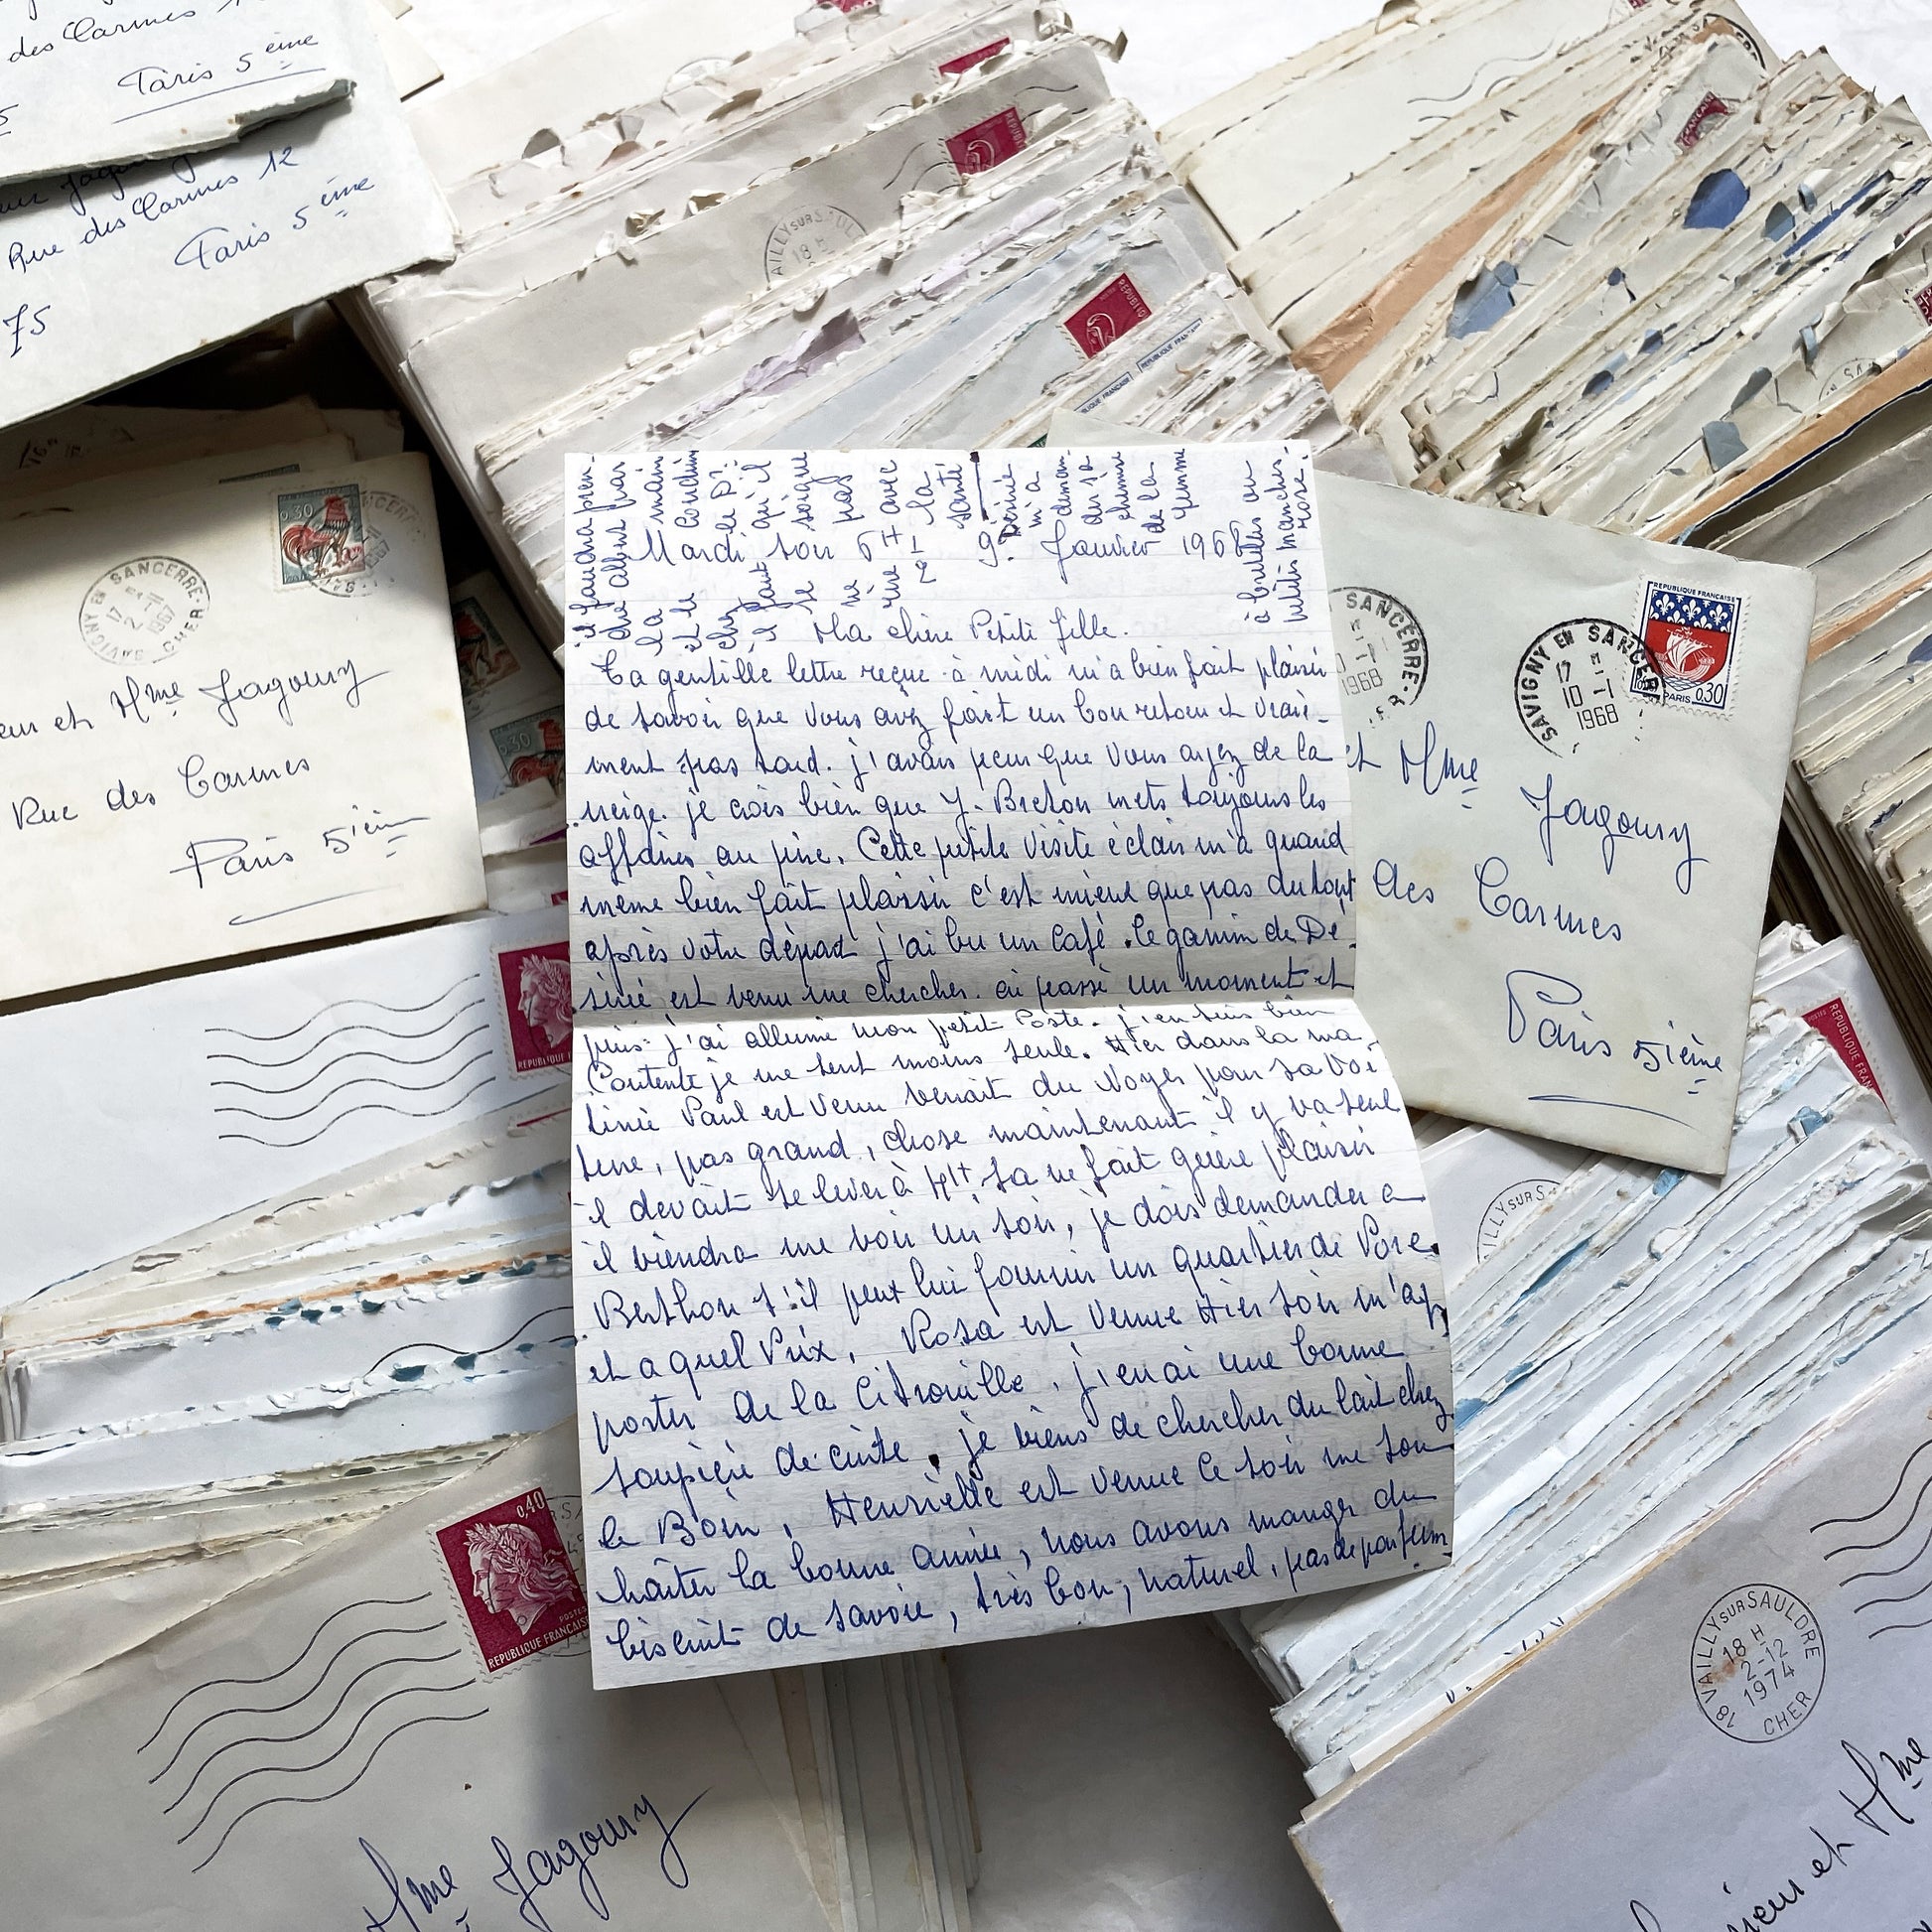 des Carmes
Paris 5 ème
Rue des Carmes 12
Paris 5 ème
75
RÉPUBLI
18 H
RÉPUBLIQUE FRANÇAISE
0,30
SAVIGNY EN SANCERRE
17 H
2-11
1967
CHER
et Mme Jagoury
Rue des Carmes
Paris 5ième
il faudra pren-
dre allant pas
la main
et le Conduire
chez le Dr
il faut qu'il
se soigne
ne pas
rire avec
la
santé
Désirée
m'a
deman-
du sa
chemise
de la
femme
à bretelles ou
petites manches
rose.
Mardi soir 6H 1/2 9. Janvier 1968
Ma chère Petite fille.
Ta gentille lettre reçue à midi m'a bien fait plaisir
de savoir que vous avez fait un bon retour et vrai-
ment pas tard. j'avais peur que vous ayez de la
neige. je crois bien que Y. Breton mets toujours les
affaires au pire. Cette petite visite éclair m'a quand
même bien fait plaisir c'est mieux que pas du tout
après votre départ j'ai bu un café. le gamin de Dé-
sirée est venu me chercher. ai passé un moment et
puis j'ai allumé mon petit Poste. j'en suis bien
Contente je me sent moins seule. Hier dans la ma-
tinée Paul est venu venait du Noyer pour sa Voi
ture, pas grand chose maintenant il y va seul
il devait se lever à 4H sa ne fait guère plaisir
il viendra me voir un soir, je dois demander a
Berthon s'il peut lui fournir un quartier de Porc.
et a quel Prix. Rosa est venue Hier soir m'ap
porter de la Citrouille. j'en ai une bonne
soupière de cuite. je viens de chercher du lait chez
le Boin. Henriette est venue ce soir me sou
haiter la bonne année, nous avons manger du
biscuit de savoie, très bon, naturel, pas de parfum
SANCERRE
1968
SAVIGNY EN SANCERRE
17 H
10-1
1968
RÉPUBLIQUE FRANÇAISE
PARIS 0,30
et Mme Jagoury
des Carmes
Paris 5ième
RÉPUBLIQUE FRAN
0,40
POSTES
RÉPUBLIQUE FRANÇAISE
Mme Jagoury
18 VAILLY SUR SAULDRE
18 H
2-12
1974
CHER
et Mme